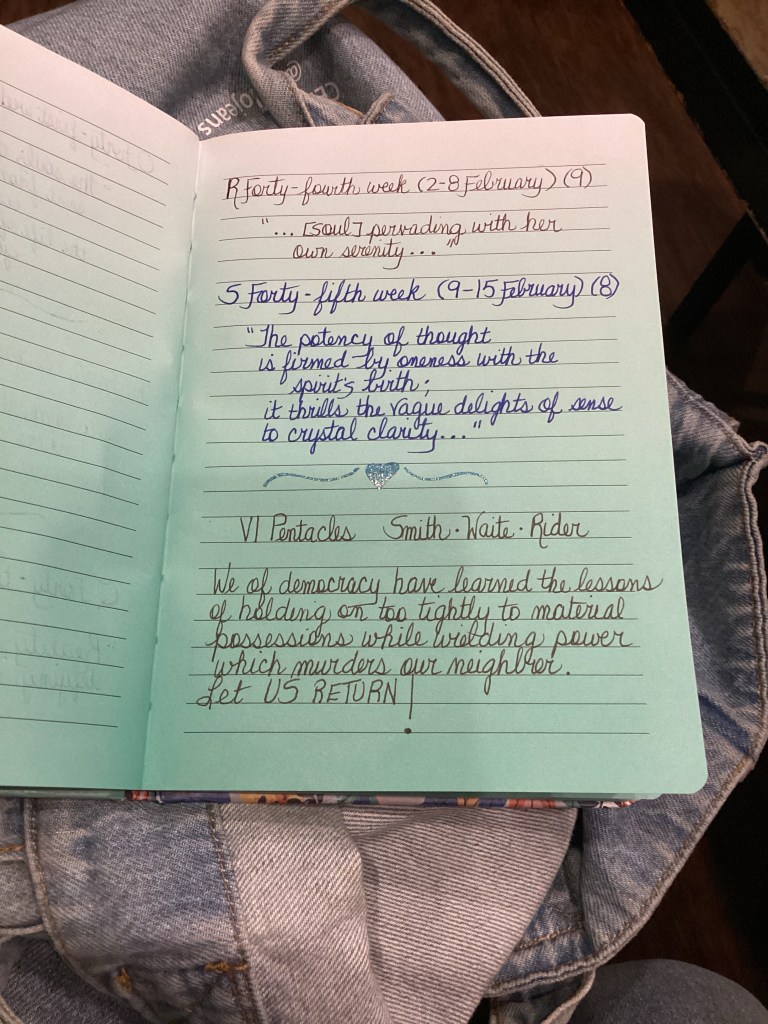 R Forty-fourth week (2-8 February) (9)
"... [soul] pervading with her
own serenity... "
S Forty-fifth week (9-15 February) (8)
"The potency of thought
is firmed by oneness with the
spirit's birth;
it thrills the vague delights of sense
to crystal clarity..."
VI Pentacles Smith · Waite · Rider
We of democracy have learned the lessons
of holding on too tightly to material
possessions while wielding power
which murders our neighbor.
Let US RETURN!